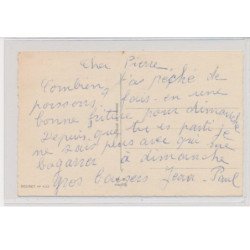 Cher Pierre,
Combien t'as pêché de
poissons, fais-en une
bonne friture pour dimanche
Depuis que tu es parti je
ne sais plus avec qui me
bagarrer à dimanche
Gros baisers Jean-Paul